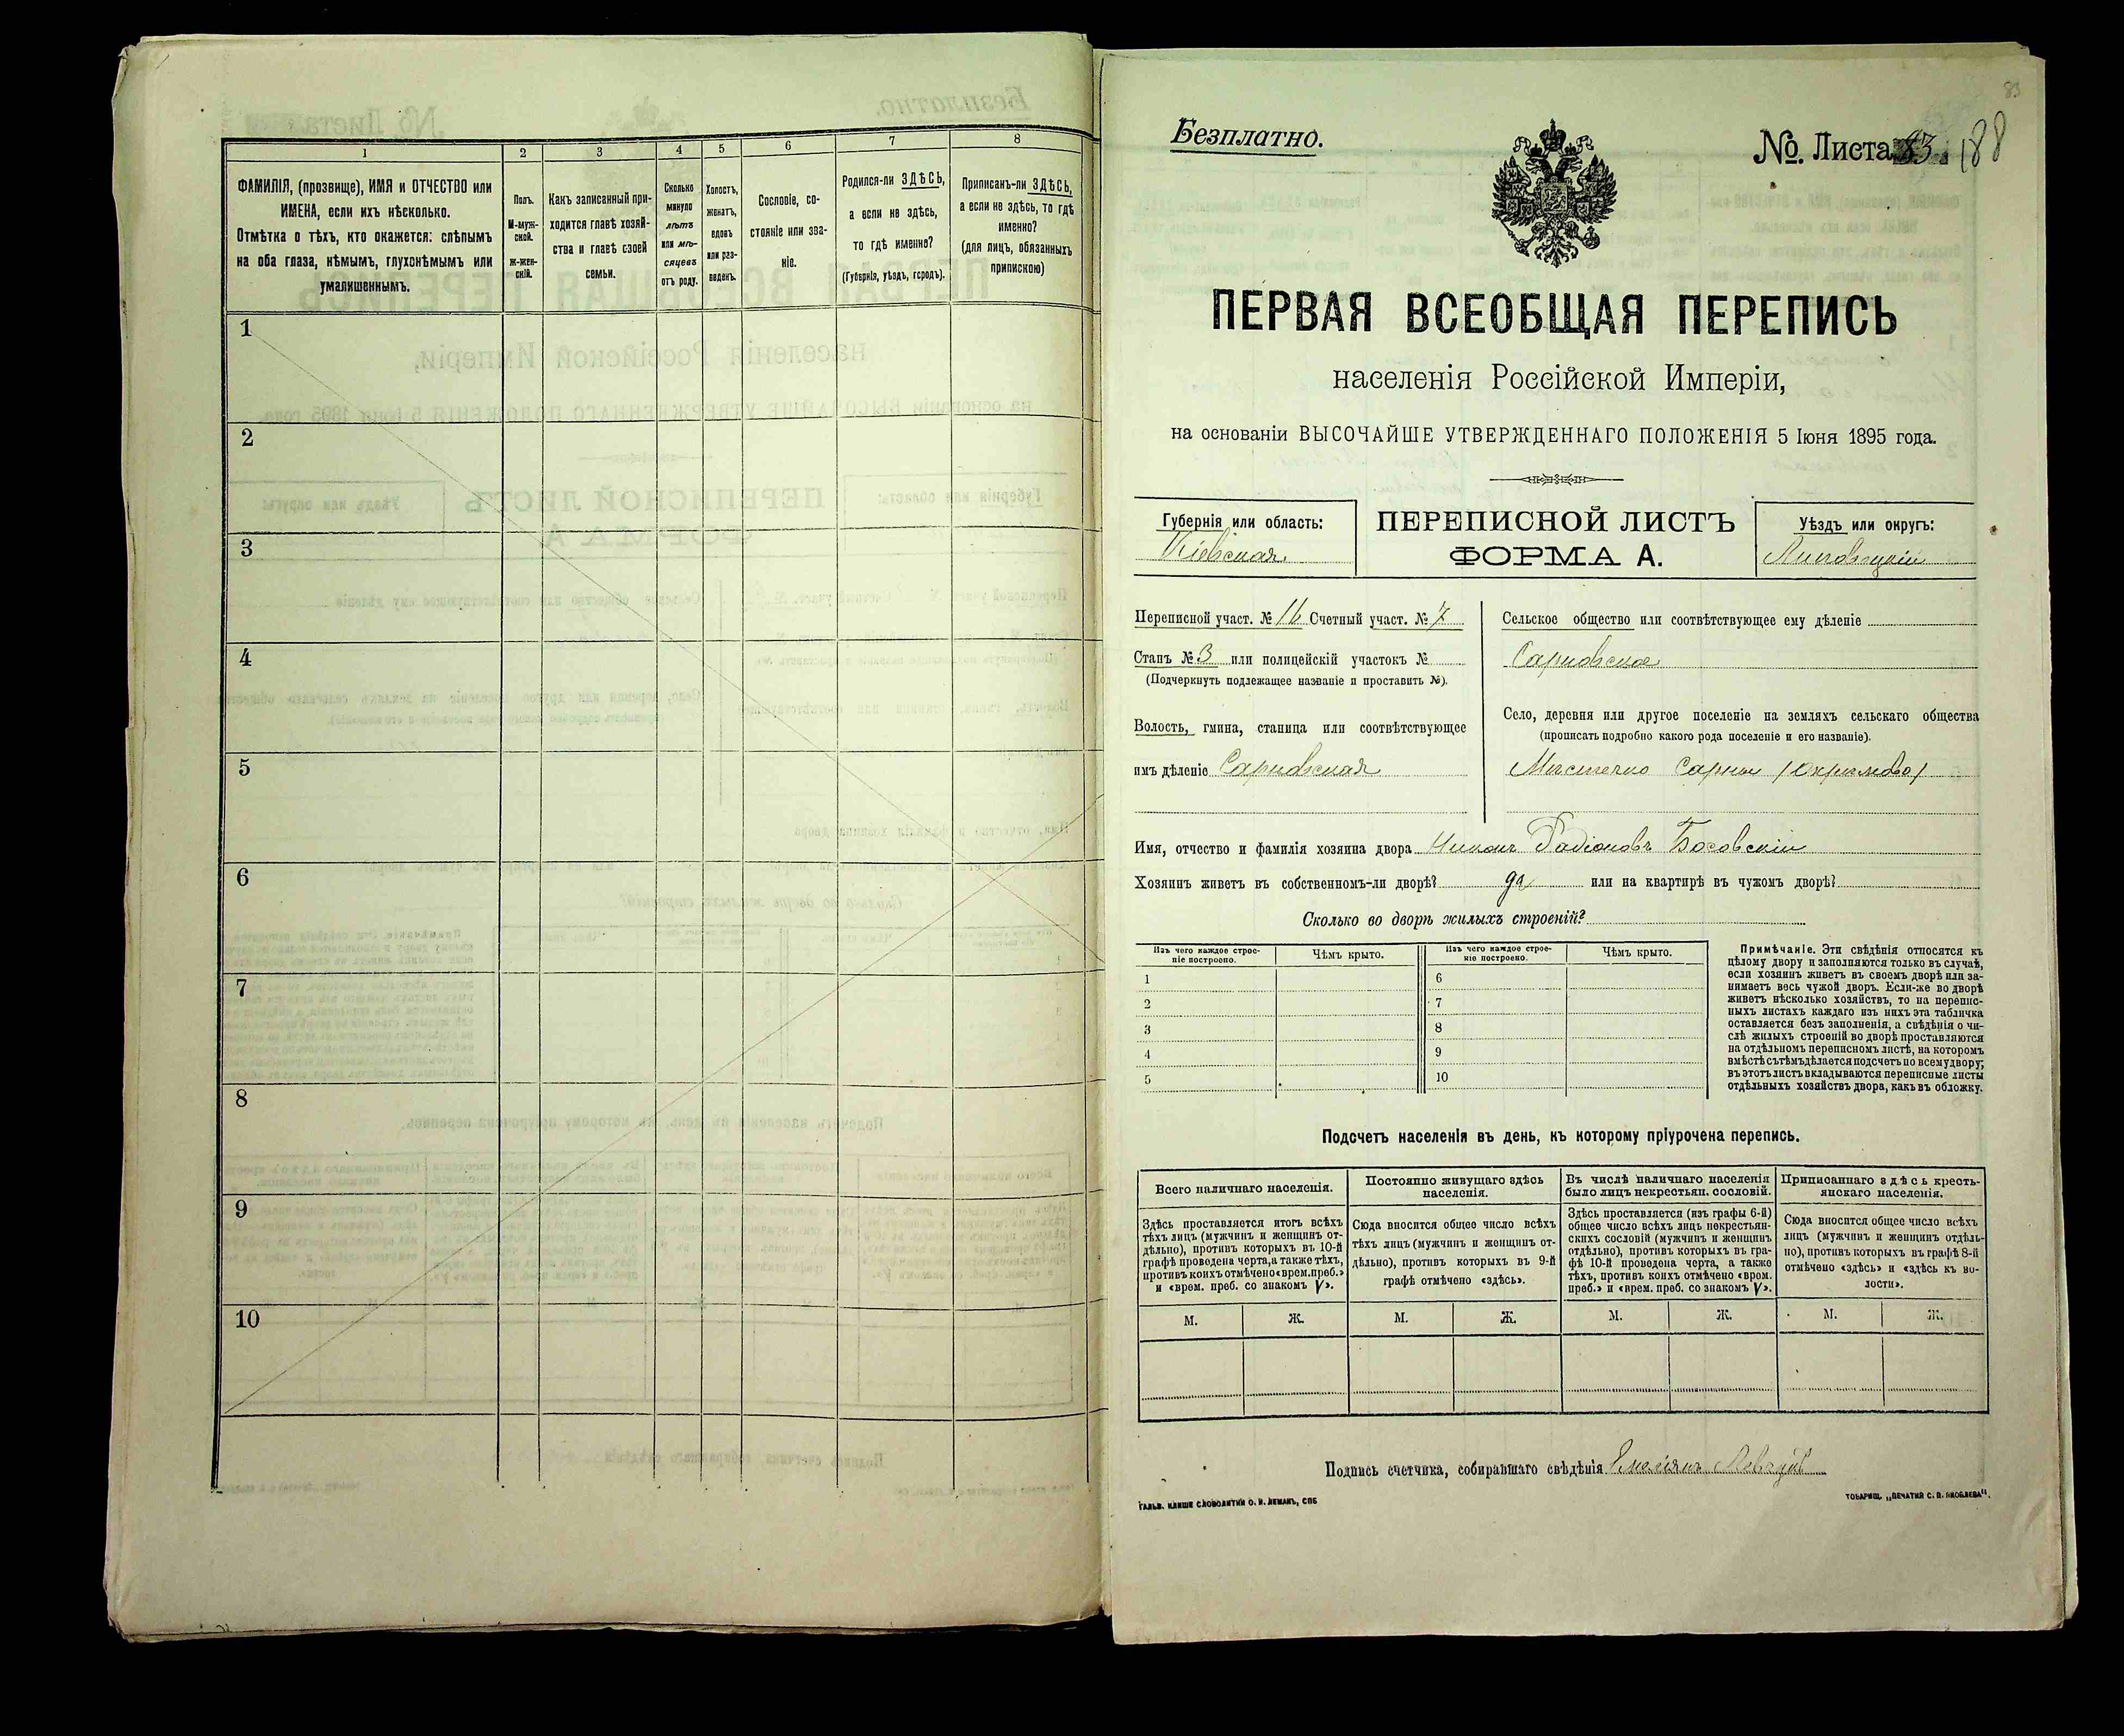 1 2 3 4 5 6 7 8
ФАМИЛІЯ, (прозвище), ИМЯ и ОТЧЕСТВО или
ИМЕНА, если ихъ нѣсколько.
Отмѣтка о тѣхъ, кто окажется: слѣпымъ
на оба глаза, нѣмымъ, глухонѣмымъ или
умалишеннымъ.
Полъ.
М-муж-
ской.
ж-жен-
скій.
Какъ записанный при-
ходится главѣ хозяй-
ства и главѣ своей
семьи.
Сколько
минуло
лѣтъ
или мѣ-
сяцевъ
отъ роду.
Холостъ,
женатъ,
вдовъ
или раз-
веденъ.
Сословіе, со-
стояніе или зва-
ніе.
Родился-ли ЗДѢСЬ,
а если не здѣсь,
то гдѣ именно?
(Губернія, уѣздъ, городъ).
Приписанъ-ли ЗДѢСЬ,
а если не здѣсь, то гдѣ
именно?
(для лицъ, обязанныхъ
припискою)
1
2
3
4
5
6
7
8
9
10
83
Безплатно.
№. Листа 83 188
ПЕРВАЯ ВСЕОБЩАЯ ПЕРЕПИСЬ
населенія Россійской Имперіи,
на основаніи ВЫСОЧАЙШЕ УТВЕРЖДЕННАГО ПОЛОЖЕНІЯ 5 Іюня 1895 года.
Губернія или область:
Кіевская
ПЕРЕПИСНОЙ ЛИСТЪ
ФОРМА А.
Уѣздъ или округъ:
Липовецкій
Переписной участ. № 16 Счетный участ. № 7
Станъ № 3 или полицейскій участокъ №
(Подчеркнуть подлежащее названіе и проставить №).
Волость, гмина, станица или соотвѣтствующее
имъ дѣленіе Сарновская
Сельское общество или соотвѣтствующее ему дѣленіе
Сарновское
Село, деревня или другое поселеніе на земляхъ сельскаго общества
(прописать подробно какого рода поселеніе и его названіе).
Мѣстечко Сарны
Имя, отчество и фамилія хозяина двора Никонъ Радіоновъ Босовскій
Хозяинъ живетъ въ собственномъ-ли дворѣ? да или на квартирѣ въ чужомъ дворѣ?
Сколько во дворѣ жилыхъ строеній?
Изъ чего каждое строе-
ніе построено.
Чѣмъ крыто.
Изъ чего каждое строе-
ніе построено.
Чѣмъ крыто.
1 6
2 7
3 8
4 9
5 10
Примѣчаніе. Эти свѣдѣнія относятся къ
цѣлому двору и заполняются только въ случаѣ,
если хозяинъ живетъ въ своемъ дворѣ или за-
нимаетъ весь чужой дворъ. Если-же во дворѣ
живетъ нѣсколько хозяйствъ, то на перепис-
ныхъ листахъ каждаго изъ нихъ эта табличка
оставляется безъ заполненія, а свѣдѣнія о чи-
слѣ жилыхъ строеній во дворѣ проставляются
на отдѣльномъ переписномъ листѣ, на которомъ
вмѣстѣ съ тѣмъ дѣлается подсчетъ по всему двору;
въ этотъ листъ вкладываются переписные листы
отдѣльныхъ хозяйствъ двора, какъ въ обложку.
Подсчетъ населенія въ день, къ которому пріурочена перепись.
Всего наличнаго населенія.
Здѣсь проставляется итогъ всѣхъ
тѣхъ лицъ (мужчинъ и женщинъ от-
дѣльно), противъ которыхъ въ 10-й
графѣ проведена черта, а также тѣхъ,
противъ коихъ отмѣчено «врем. преб.»
и «врем. преб. со знакомъ V».
Постоянно живущаго здѣсь
населенія.
Сюда вносится общее число всѣхъ
тѣхъ лицъ (мужчинъ и женщинъ от-
дѣльно), противъ которыхъ въ 9-й
графѣ отмѣчено «здѣсь».
Въ числѣ наличнаго населенія
было лицъ некрестьян. сословій.
Здѣсь проставляется (изъ графы 6-й)
общее число всѣхъ лицъ некрестьян-
скихъ сословій (мужчинъ и женщинъ
отдѣльно), противъ которыхъ въ гра-
фѣ 10-й проведена черта, а также
тѣхъ, противъ коихъ отмѣчено «врем.
преб.» и «врем. преб. со знакомъ V».
Приписаннаго здѣсь кресть-
янскаго населенія.
Сюда вносится общее число всѣхъ
лицъ (мужчинъ и женщинъ отдѣль-
но), противъ которыхъ въ графѣ 8-й
отмѣчено «здѣсь» и «здѣсь къ во-
лости».
М. Ж. М. Ж. М. Ж. М. Ж.
Подпись счетчика, собиравшаго свѣдѣнія
ГАЛЬВ. КЛИШЕ СЛОВОЛИТНИ О. И. ЛЕМАНЪ, СПБ
ТОВАРИЩ. „ПЕЧАТНЯ С. П. ЯКОВЛЕВА".